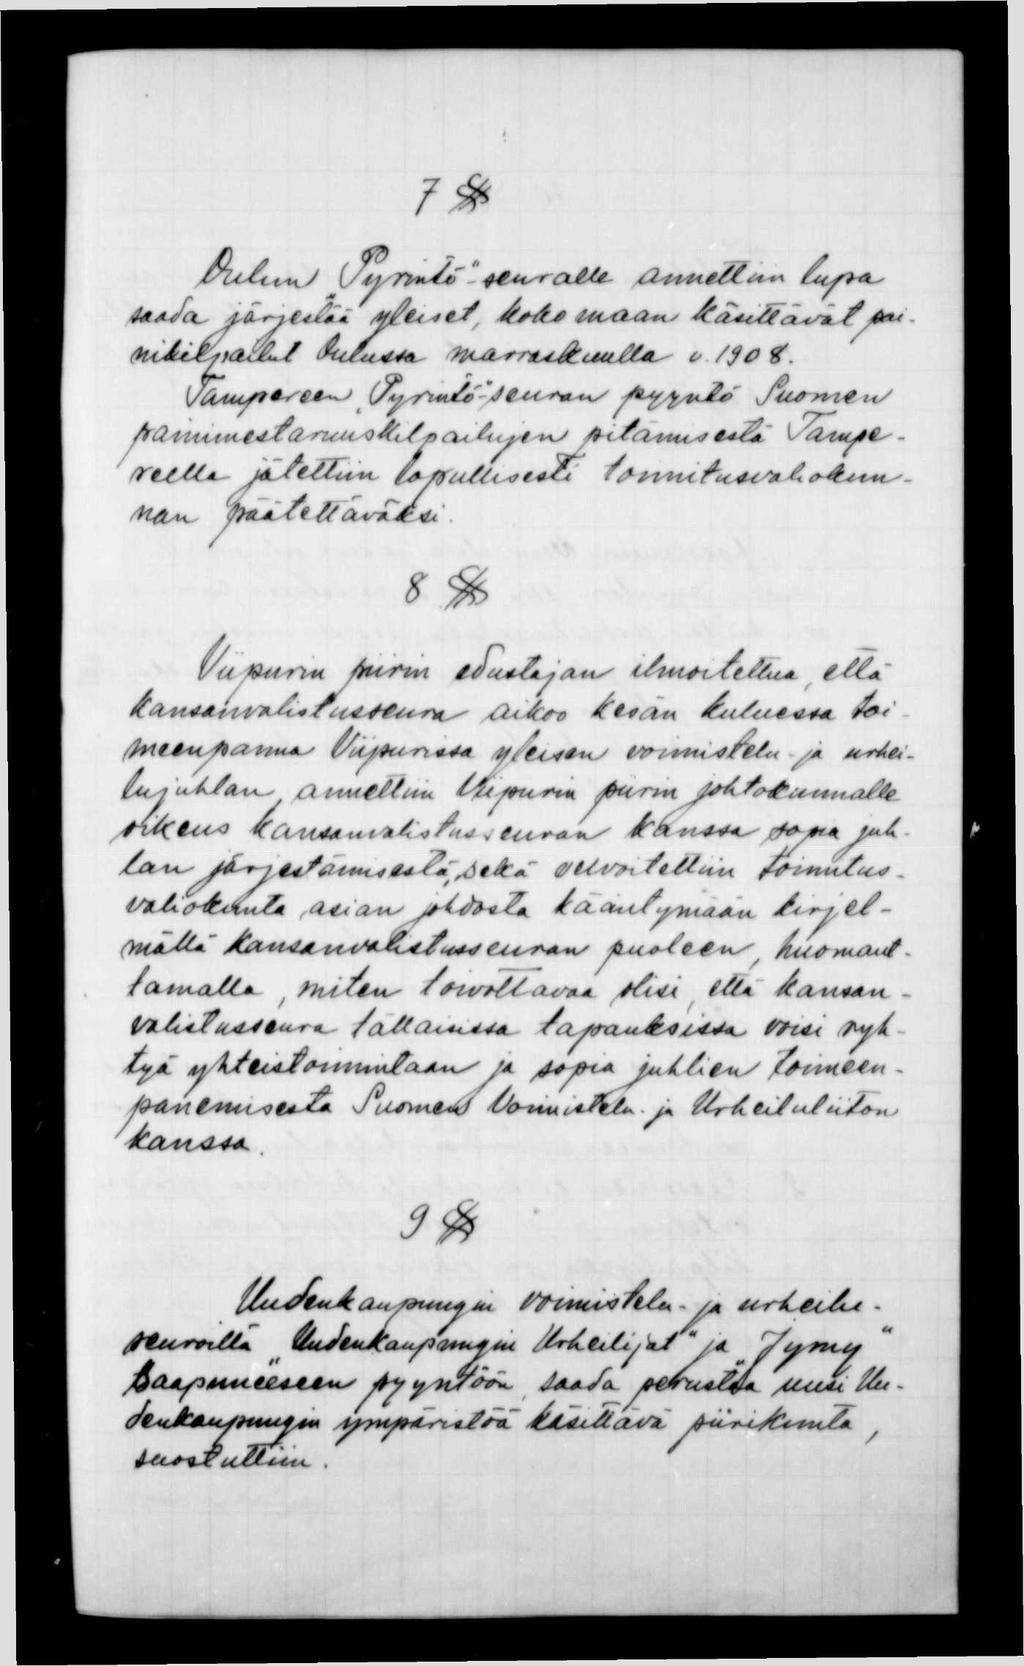 7 §
Oulun „Pyrintö"-seuralle annettiin lupa
saada järjestää yleiset, koko maan käsittävät pai-
nikilpailut Oulussa marraskuulla v. 1908.
Tampereen „Pyrintö"-seuran pyyntö Suomen
painimestaruuskilpailujen pitämisestä Tampe-
reella jätettiin lopullisesti toimitusvaliokun-
nan päätettäväksi.
8 §
Viipurin piirin edustajan ilmoitettua, että
kansanvalistusseura aikoo kesän kuluessa toi-
meenpanna Viipurissa yleisen voimistelu- ja urhei-
lujuhlan, annettiin Viipurin piirin johtokunnalle
oikeus kansanvalistusseuran kanssa sopia juh-
lan järjestämisestä, sekä velvoitettiin toimitus-
valiokunta asian johdosta kääntymään kirjel-
mällä kansanvalistusseuran puoleen, huomaut-
tamalla, miten toivottavaa olisi, että kansan-
valistusseura tällaisissa tapauksissa voisi ryh-
tyä yhteistoimintaan ja sopia juhlien toimeen-
panemisesta Suomen Voimistelu- ja Urheiluliiton
kanssa.
9 §
Uudenkaupungin voimistelu- ja urheilu-
seuroilta „Uudenkaupungin Urheilijat" ja „Jymy"
saapuneeseen pyyntöön, saada perustaa uusi Uu-
denkaupungin ympäristöä käsittävä piirikunta,
suostuttiin.